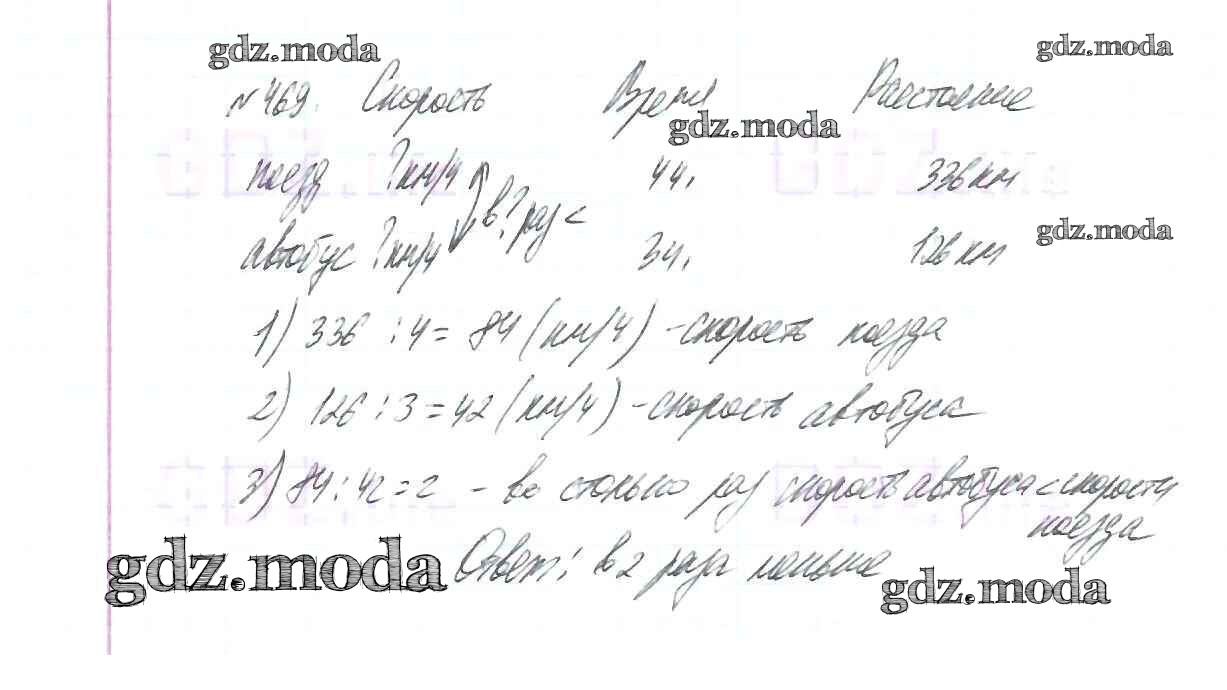 gdz.moda gdz.moda
№469. Скорость Время Расстояние
gdz.moda
поезд ?км/ч 4ч. 336 км
в ? раз <
gdz.moda
автобус ?км/ч 3ч. 126 км
1) 336 : 4 = 84 (км/ч) - скорость поезда
2) 126 : 3 = 42 (км/ч) - скорость автобуса
3) 84 : 42 = 2 - во столько раз скорость автобуса < скорости
поезда
gdz.moda Ответ: в 2 раза меньше gdz.moda